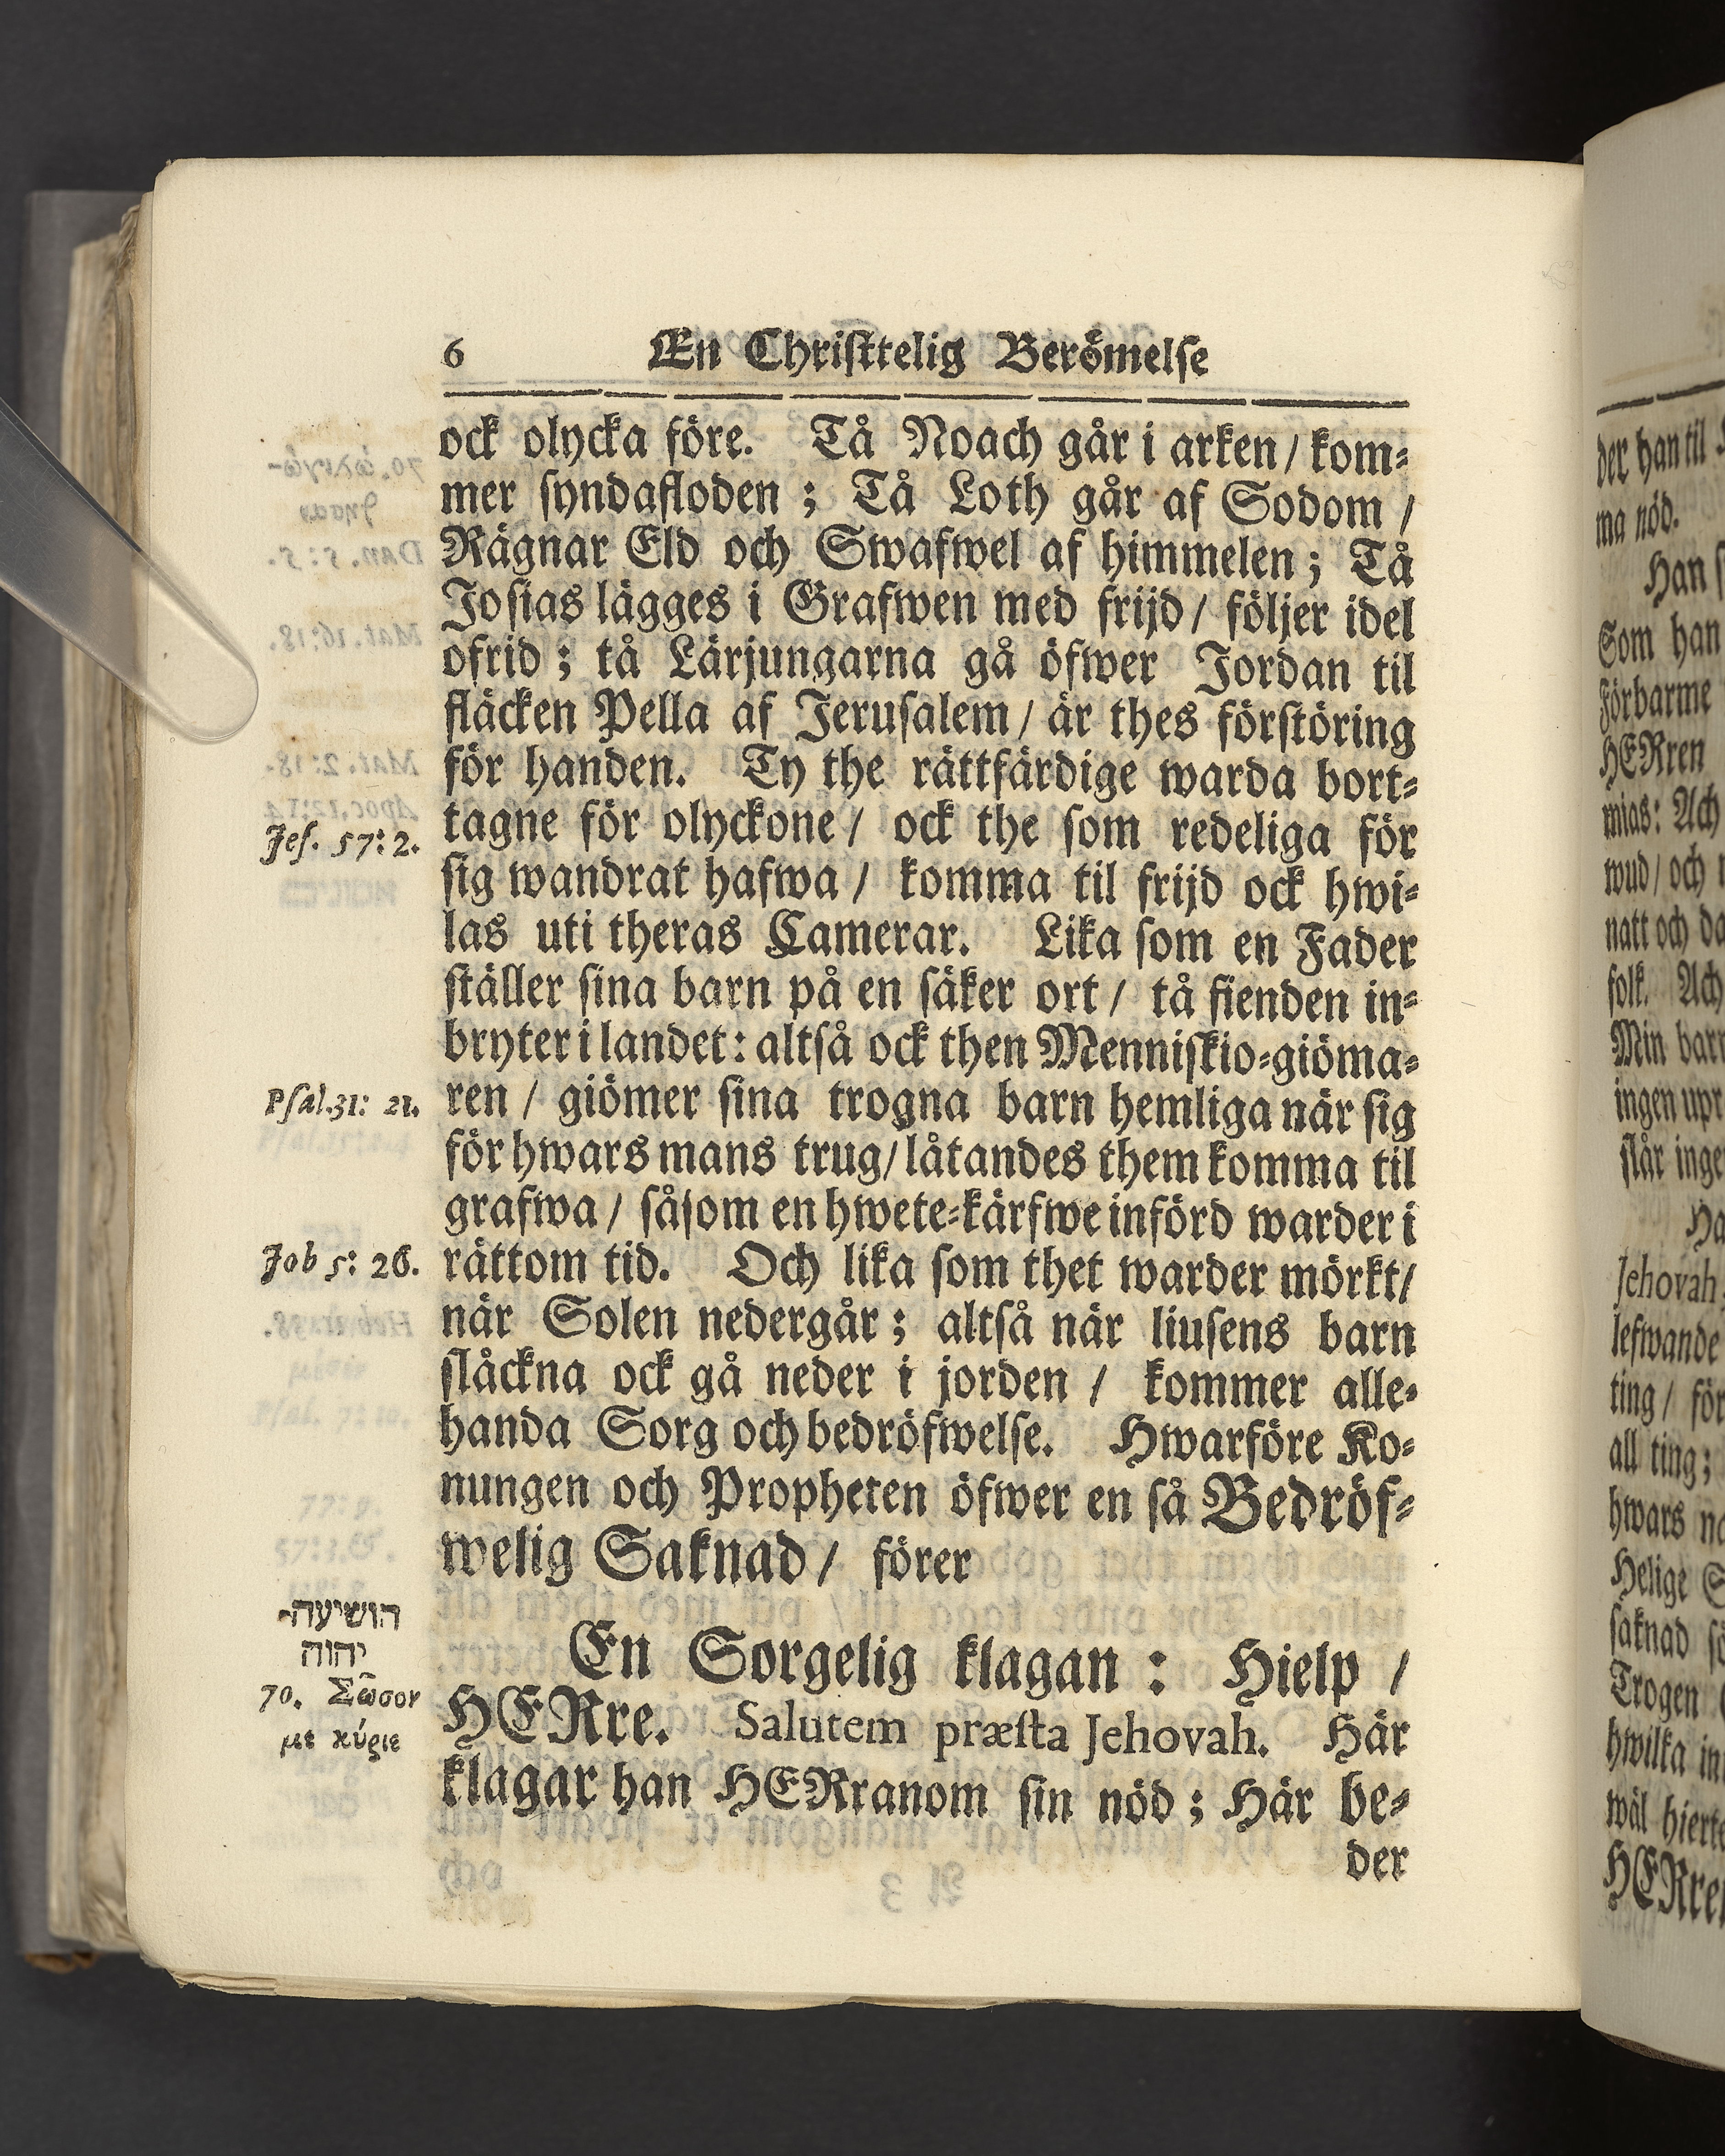 6 En Christtelig Berömelse
ock olycka före. Tå Noach går i arken / kom-
mer syndafloden ; Tå Loth går af Sodom /
Rägnar Eld och Swafwel af himmelen ; Tå
Josias lägges i Grafwen med frijd / följer idel
ofrid ; tå Lärjungarna gå öfwer Jordan til
fläcken Pella af Jerusalem / är thes förstöring
för handen. Ty the rättfärdige warda bort-
tagne för olyckone / ock the som redeliga för
Jes. 57: 2.
sig wandrat hafwa / komma til frijd ock hwi-
las uti theras Camerar. Lika som en Fader
ställer sina barn på en säker ort / tå fienden in-
bryter i landet : altså ock then Menniskio-giöma-
ren / giömer sina trogna barn hemliga när sig
Psal. 31: 21.
för hwars mans trug / låtandes them komma til
grafwa / såsom en hwete-kärfwe införd warder i
rättom tid. Och lika som thet warder mörkt /
Job 5: 26.
när Solen nedergår ; altså när liusens barn
slåckna ock gå neder i jorden / kommer alle-
handa Sorg och bedröfwelse. Hwarföre Ko-
nungen och Propheten öfwer en så Bedröf-
welig Saknad / förer
הושיעה־
יהוה
70. Σῶσον
με κύριε
En Sorgelig klagan : Hielp /
HERre. Salutem præsta Jehovah. Här
klagar han HERranom sin nöd ; Här be-
der
der han til
ma nöd.
Han
Som han
Förbarme
HERren
mias: Ach
wud / och
natt och
folk. Ach
Min
ingen
slår
Jehovah
lefwande
ting / för
all ting ;
hwars
Helige
saknad
Trogen
hwilka
wäl